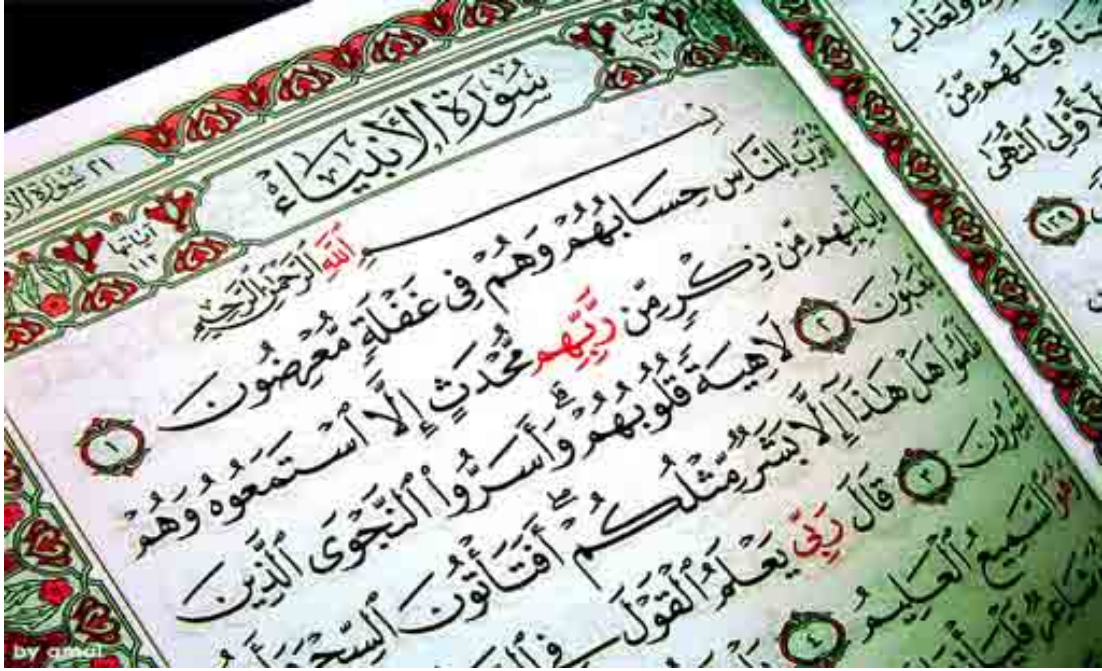 ٢١ سُورَةُ الأَنبِ
سُورَةُ الأَنبِيَاءِ
آيَاتُهَا
١١٢
بِسْمِ اللَّهِ الرَّحْمَٰنِ الرَّحِيمِ
لِلنَّاسِ حِسَابُهُمْ وَهُمْ فِي غَفْلَةٍ مُّعْرِضُونَ ١
يَأْتِيهِم مِّن ذِكْرٍ مِّن رَّبِّهِم مُّحْدَثٍ إِلَّا ٱسْتَمَعُوهُ وَهُمْ
يَلْعَبُونَ ٢ لَاهِيَةً قُلُوبُهُمْ ۗ وَأَسَرُّوا۟ ٱلنَّجْوَى ٱلَّذِينَ
ظَلَمُوا۟ هَلْ هَٰذَآ إِلَّا بَشَرٌ مِّثْلُكُمْ ۖ أَفَتَأْتُونَ ٱلسِّحْرَ
٣ قَالَ رَبِّي يَعْلَمُ ٱلْقَوْلَ فِي
ٱلسَّمِيعُ ٱلْعَلِيمُ ٤
قَبْلَهُم مِّنَ
لِّأُو۟لِي ٱلنُّهَىٰ
١٢٩
by amal